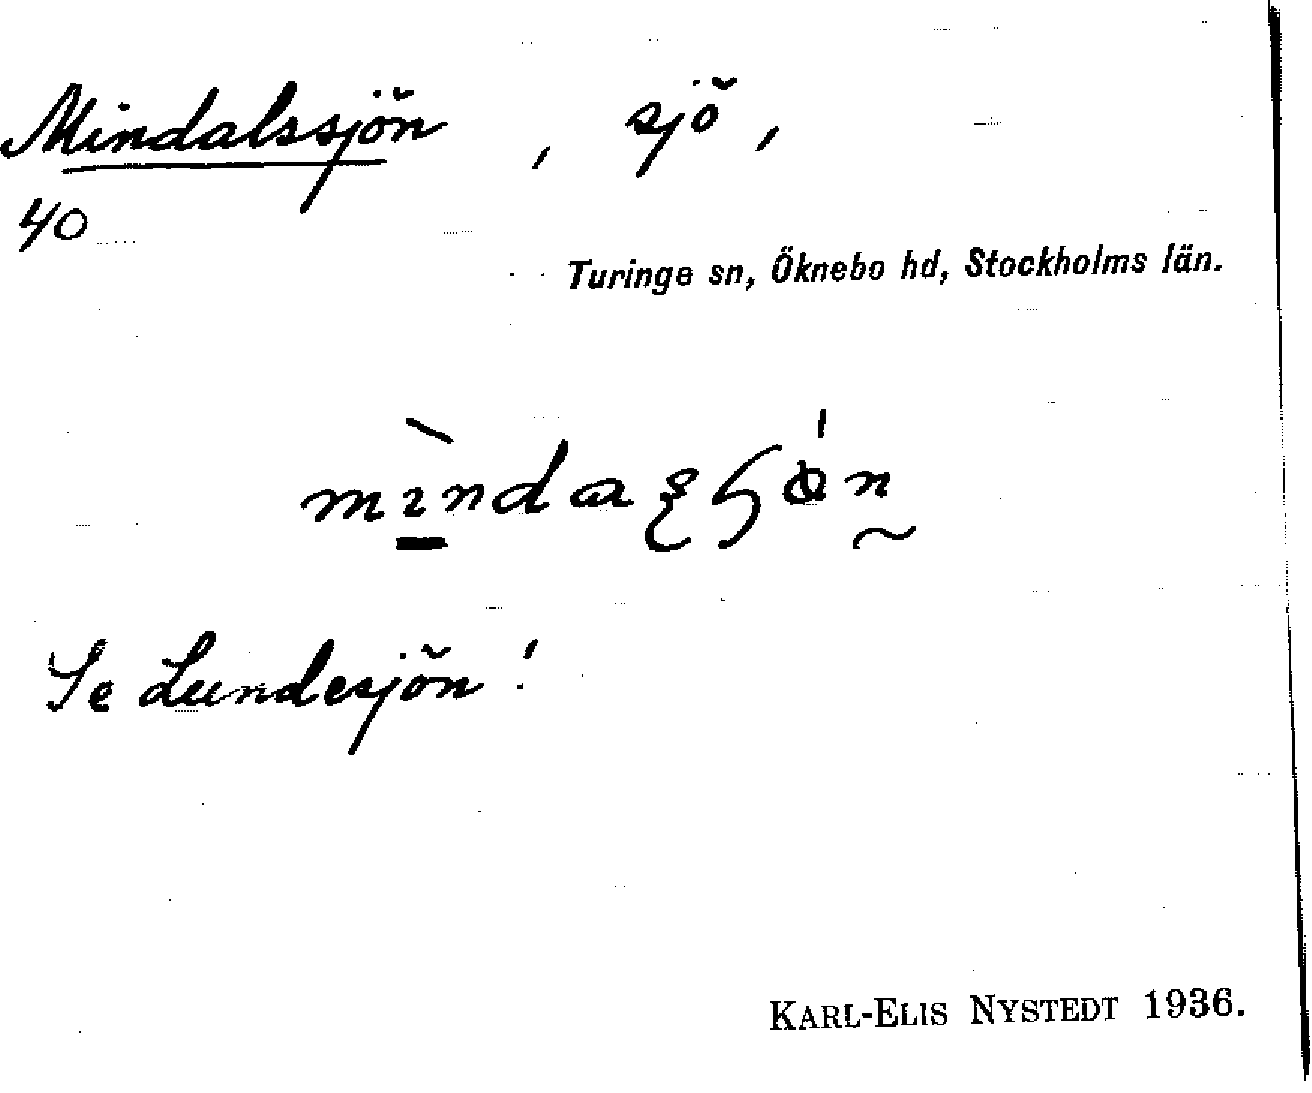 Mindalssjön, sjö,
40
Turinge sn, Öknebo hd, Stockholms län.
Se Lundesjön!
KARL-ELIS NYSTEDT 1936.